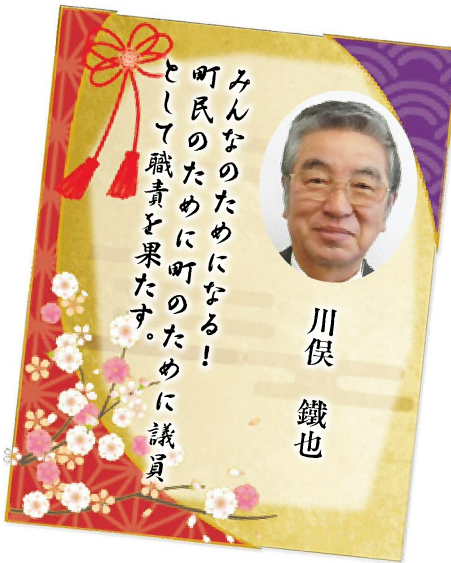 みんなのためになる!
町民のために町のために議員
として職責を果たす。
川俣 鐵也